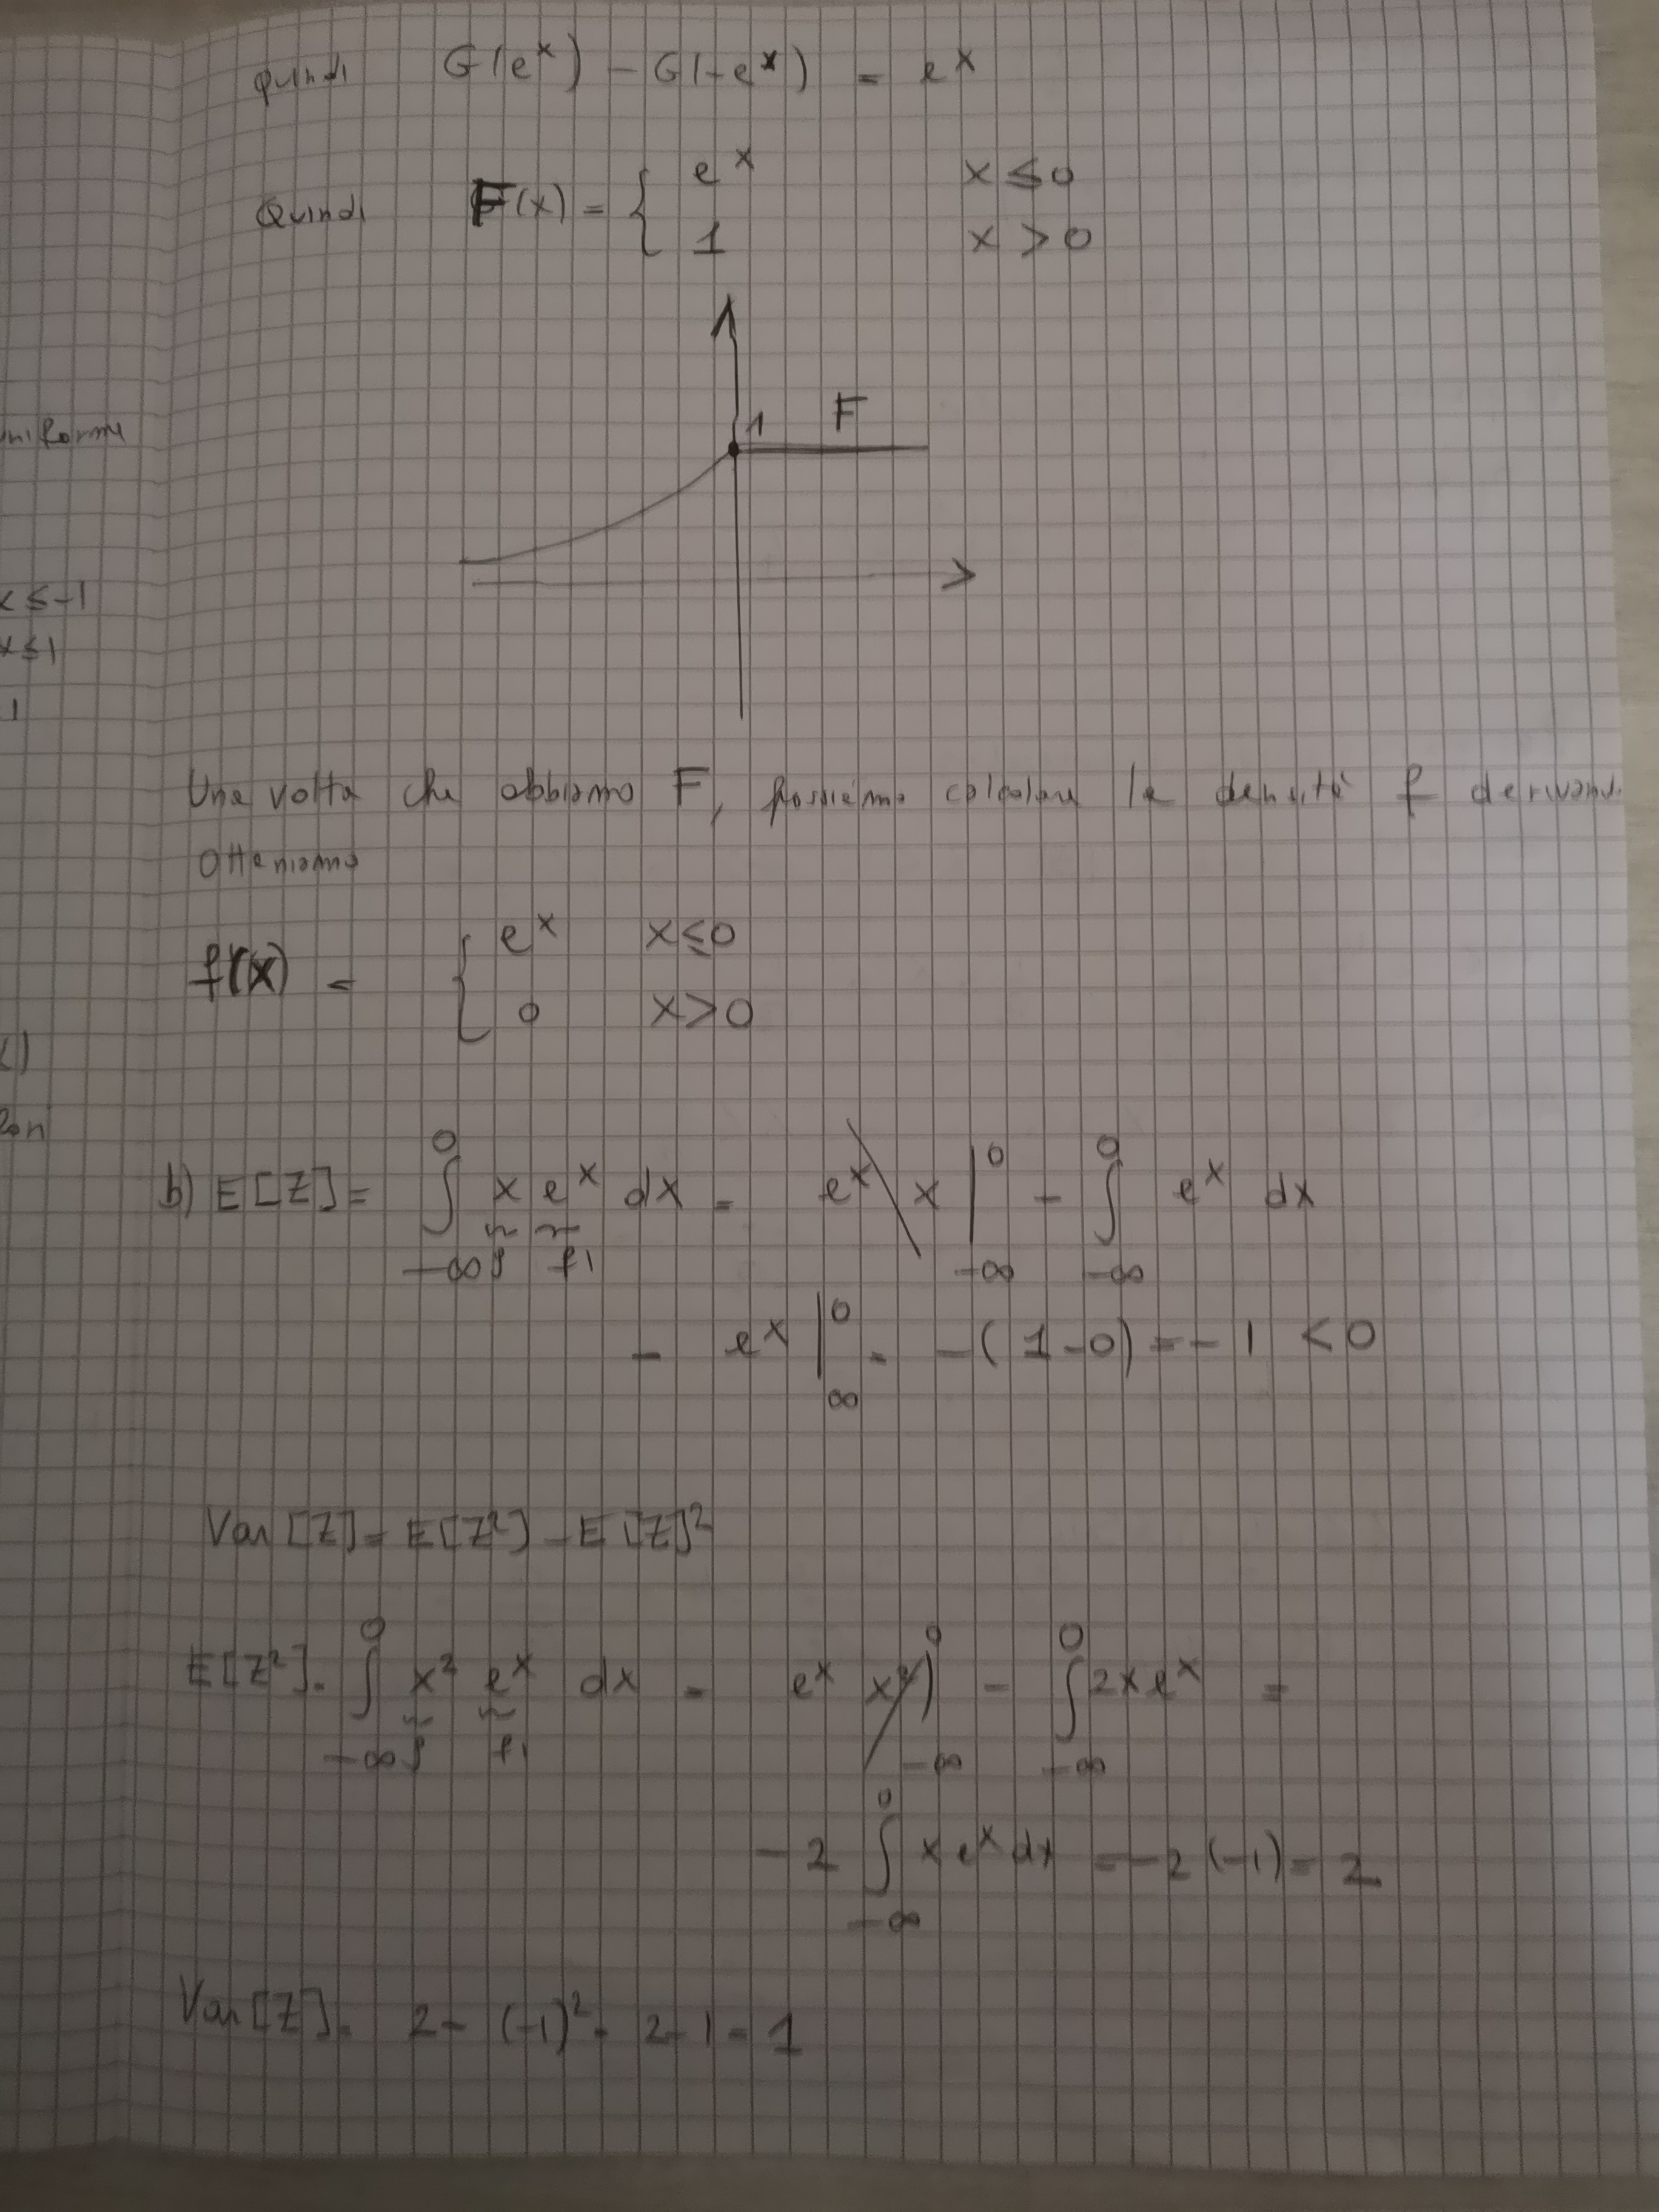 Quindi G(e^x) - G(-e^x) = e^x
Quindi F(x) = { e^x x ≤ 0
1 x > 0
1 F
uniforme
x ≤ -1
x ≤ 1
1
Una volta che abbiamo F, possiamo calcolare la densità f
Otteniamo
f(x) = { e^x x ≤ 0
0 x > 0
b) E[Z] = ∫_{-∞}^{0} x e^x dx = e^x x |_{-∞}^{0} - ∫_{-∞}^{0} e^x dx
g f'
- e^x |_{∞}^{0} = -(1-0) = -1 < 0
Var[Z] = E[Z²] - E[Z]²
E[Z²] = ∫_{-∞}^{0} x² e^x dx = e^x x² |_{-∞}^{0} - ∫_{-∞}^{0} 2x e^x =
g f'
-2 ∫_{-∞}^{0} x e^x dx = -2(-1) = 2
Var[Z] = 2 - (-1)² = 2 - 1 = 1